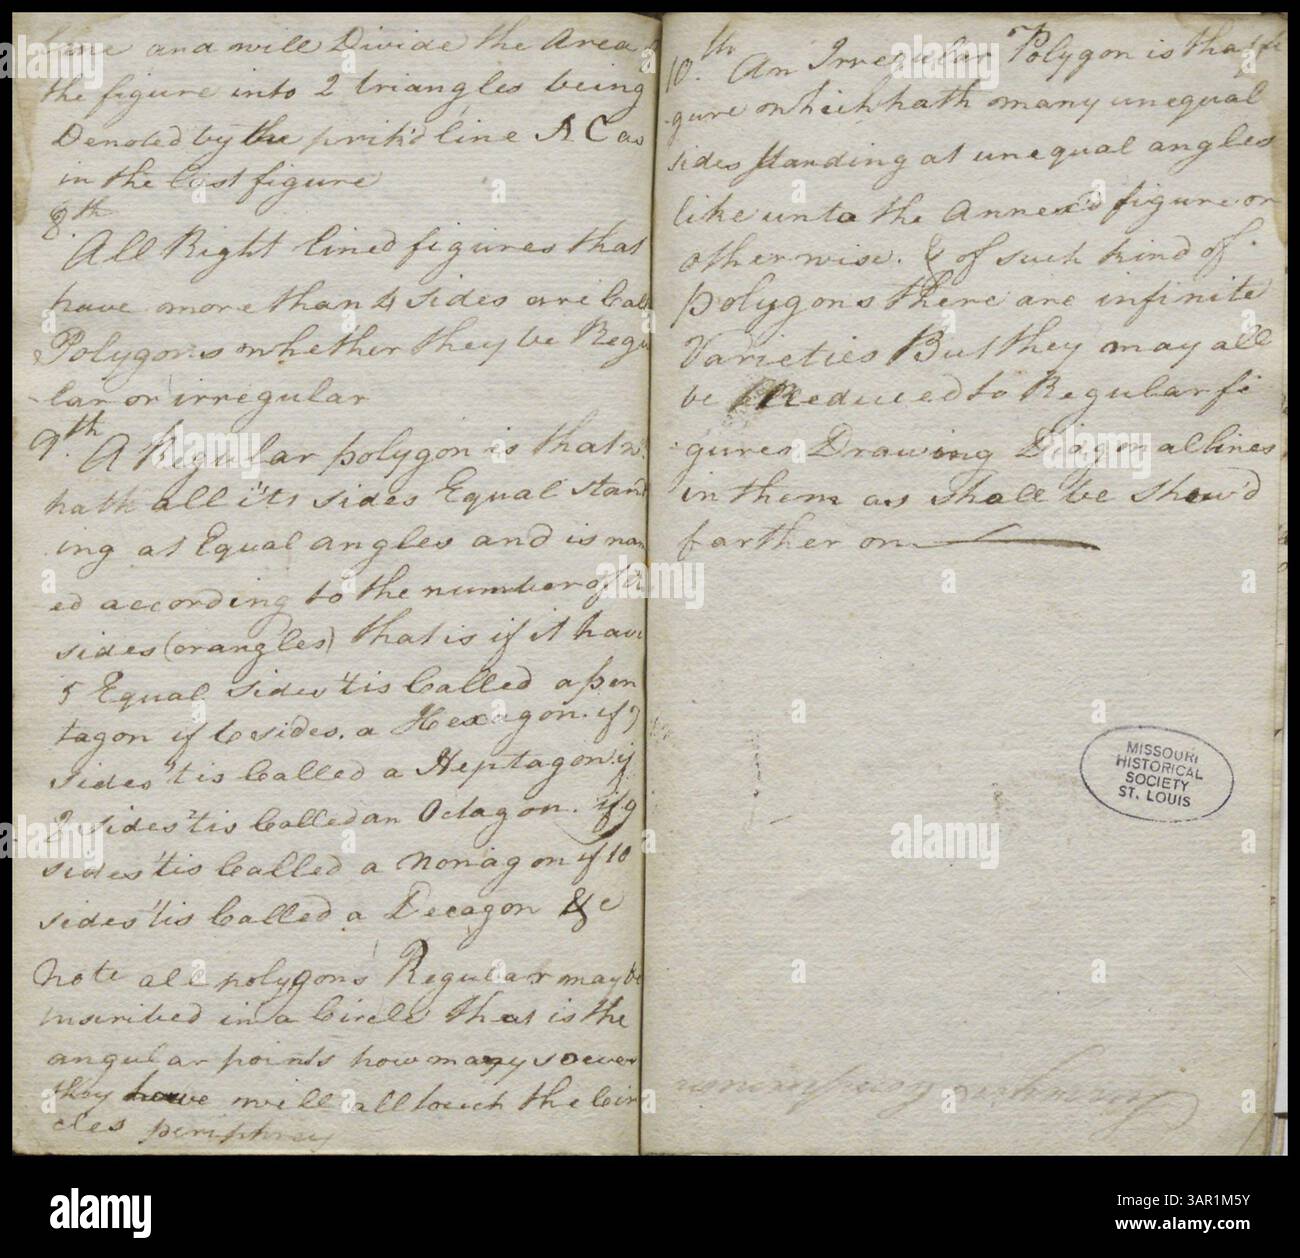 line and will Divide the Area of
the figure into 2 triangles being
Denoted by the prik'd line A C as
in the last figure
8.th
All Right lined figures that
have more than 4 sides are Call
Polygons whether they be Regu
lar or irregular
9.th A Regular polygon is that
hath all its sides Equal stand
ing at Equal angles and is nam
ed according to the number of
sides (or angles) that is if it have
5 Equal sides 'tis Called a pen
tagon if 6 sides. a Hexagon. if 7
sides 'tis Called a Heptagon if
8 sides 'tis Called an Octagon. if 9
sides 'tis Called a Nonagon if 10
sides 'tis Called a Decagon &c
Note all polygons Regular may be
inscribed in a Circle that is the
angular points how many soever
they have will all touch the Cir
cles periphrey
10.th An Irregular Polygon is that fi
gure which hath many unequal
sides standing at unequal angles
like unto the Annex'd figure or
otherwise. & of such kind of
polygons there are infinite
Varieties But they may all
be Reduced to Regular fi
gures Drawing Diagonal lines
in them as shall be shew'd
farther on
MISSOURI
HISTORICAL
SOCIETY
ST. LOUIS
alamy
Image ID: 3AR1M5Y
www.alamy.com